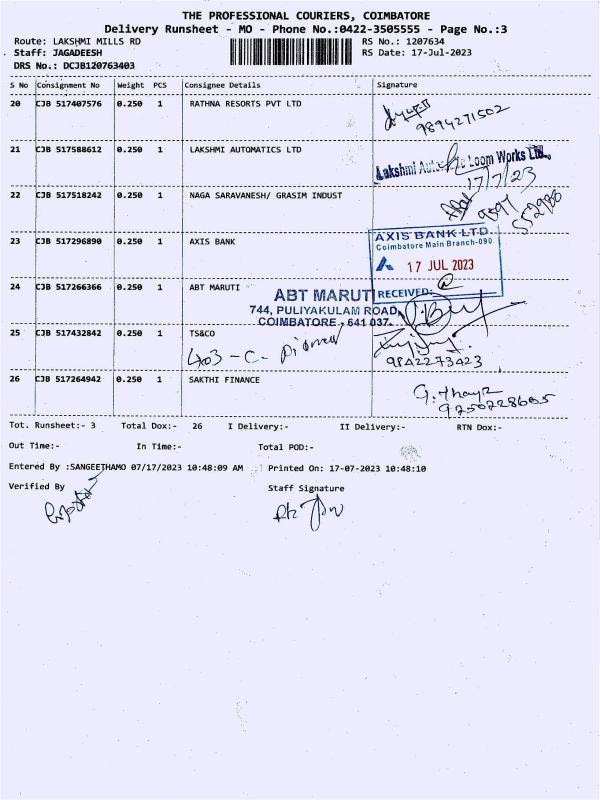 THE PROFESSIONAL COURIERS, COIMBATORE
Delivery Runsheet - MO - Phone No.:0422-3505555 - Page No.:3
Route: LAKSHMI MILLS RD RS No.: 1207634
Staff: JAGADEESH RS Date: 17-Jul-2023
DRS No.: DCJB120763403
S No Consignment No Weight PCS Consignee Details Signature
20 CJB 517407576 0.250 1 RATHNA RESORTS PVT LTD
9894271502
21 CJB 517588612 0.250 1 LAKSHMI AUTOMATICS LTD
Lakshmi Loom Works Ltd.,
17/7/23
22 CJB 517518242 0.250 1 NAGA SARAVANESH/ GRASIM INDUST
9597
552988
23 CJB 517296890 0.250 1 AXIS BANK
AXIS BANK LTD.
Coimbatore Main Branch-090
17 JUL 2023
RECEIVED:
24 CJB 517266366 0.250 1 ABT MARUTI
ABT MARUTI
744, PULIYAKULAM ROAD,
COIMBATORE - 641 037.
25 CJB 517432842 0.250 1 TS&CO
403 - C - Pioneer
9842273423
26 CJB 517264942 0.250 1 SAKTHI FINANCE
9250228605
Tot. Runsheet:- 3 Total Dox:- 26 I Delivery:- II Delivery:- RTN Dox:-
Out Time:- In Time:- Total POD:-
Entered By :SANGEETHAMO 07/17/2023 10:48:09 AM Printed On: 17-07-2023 10:48:10
Verified By Staff Signature